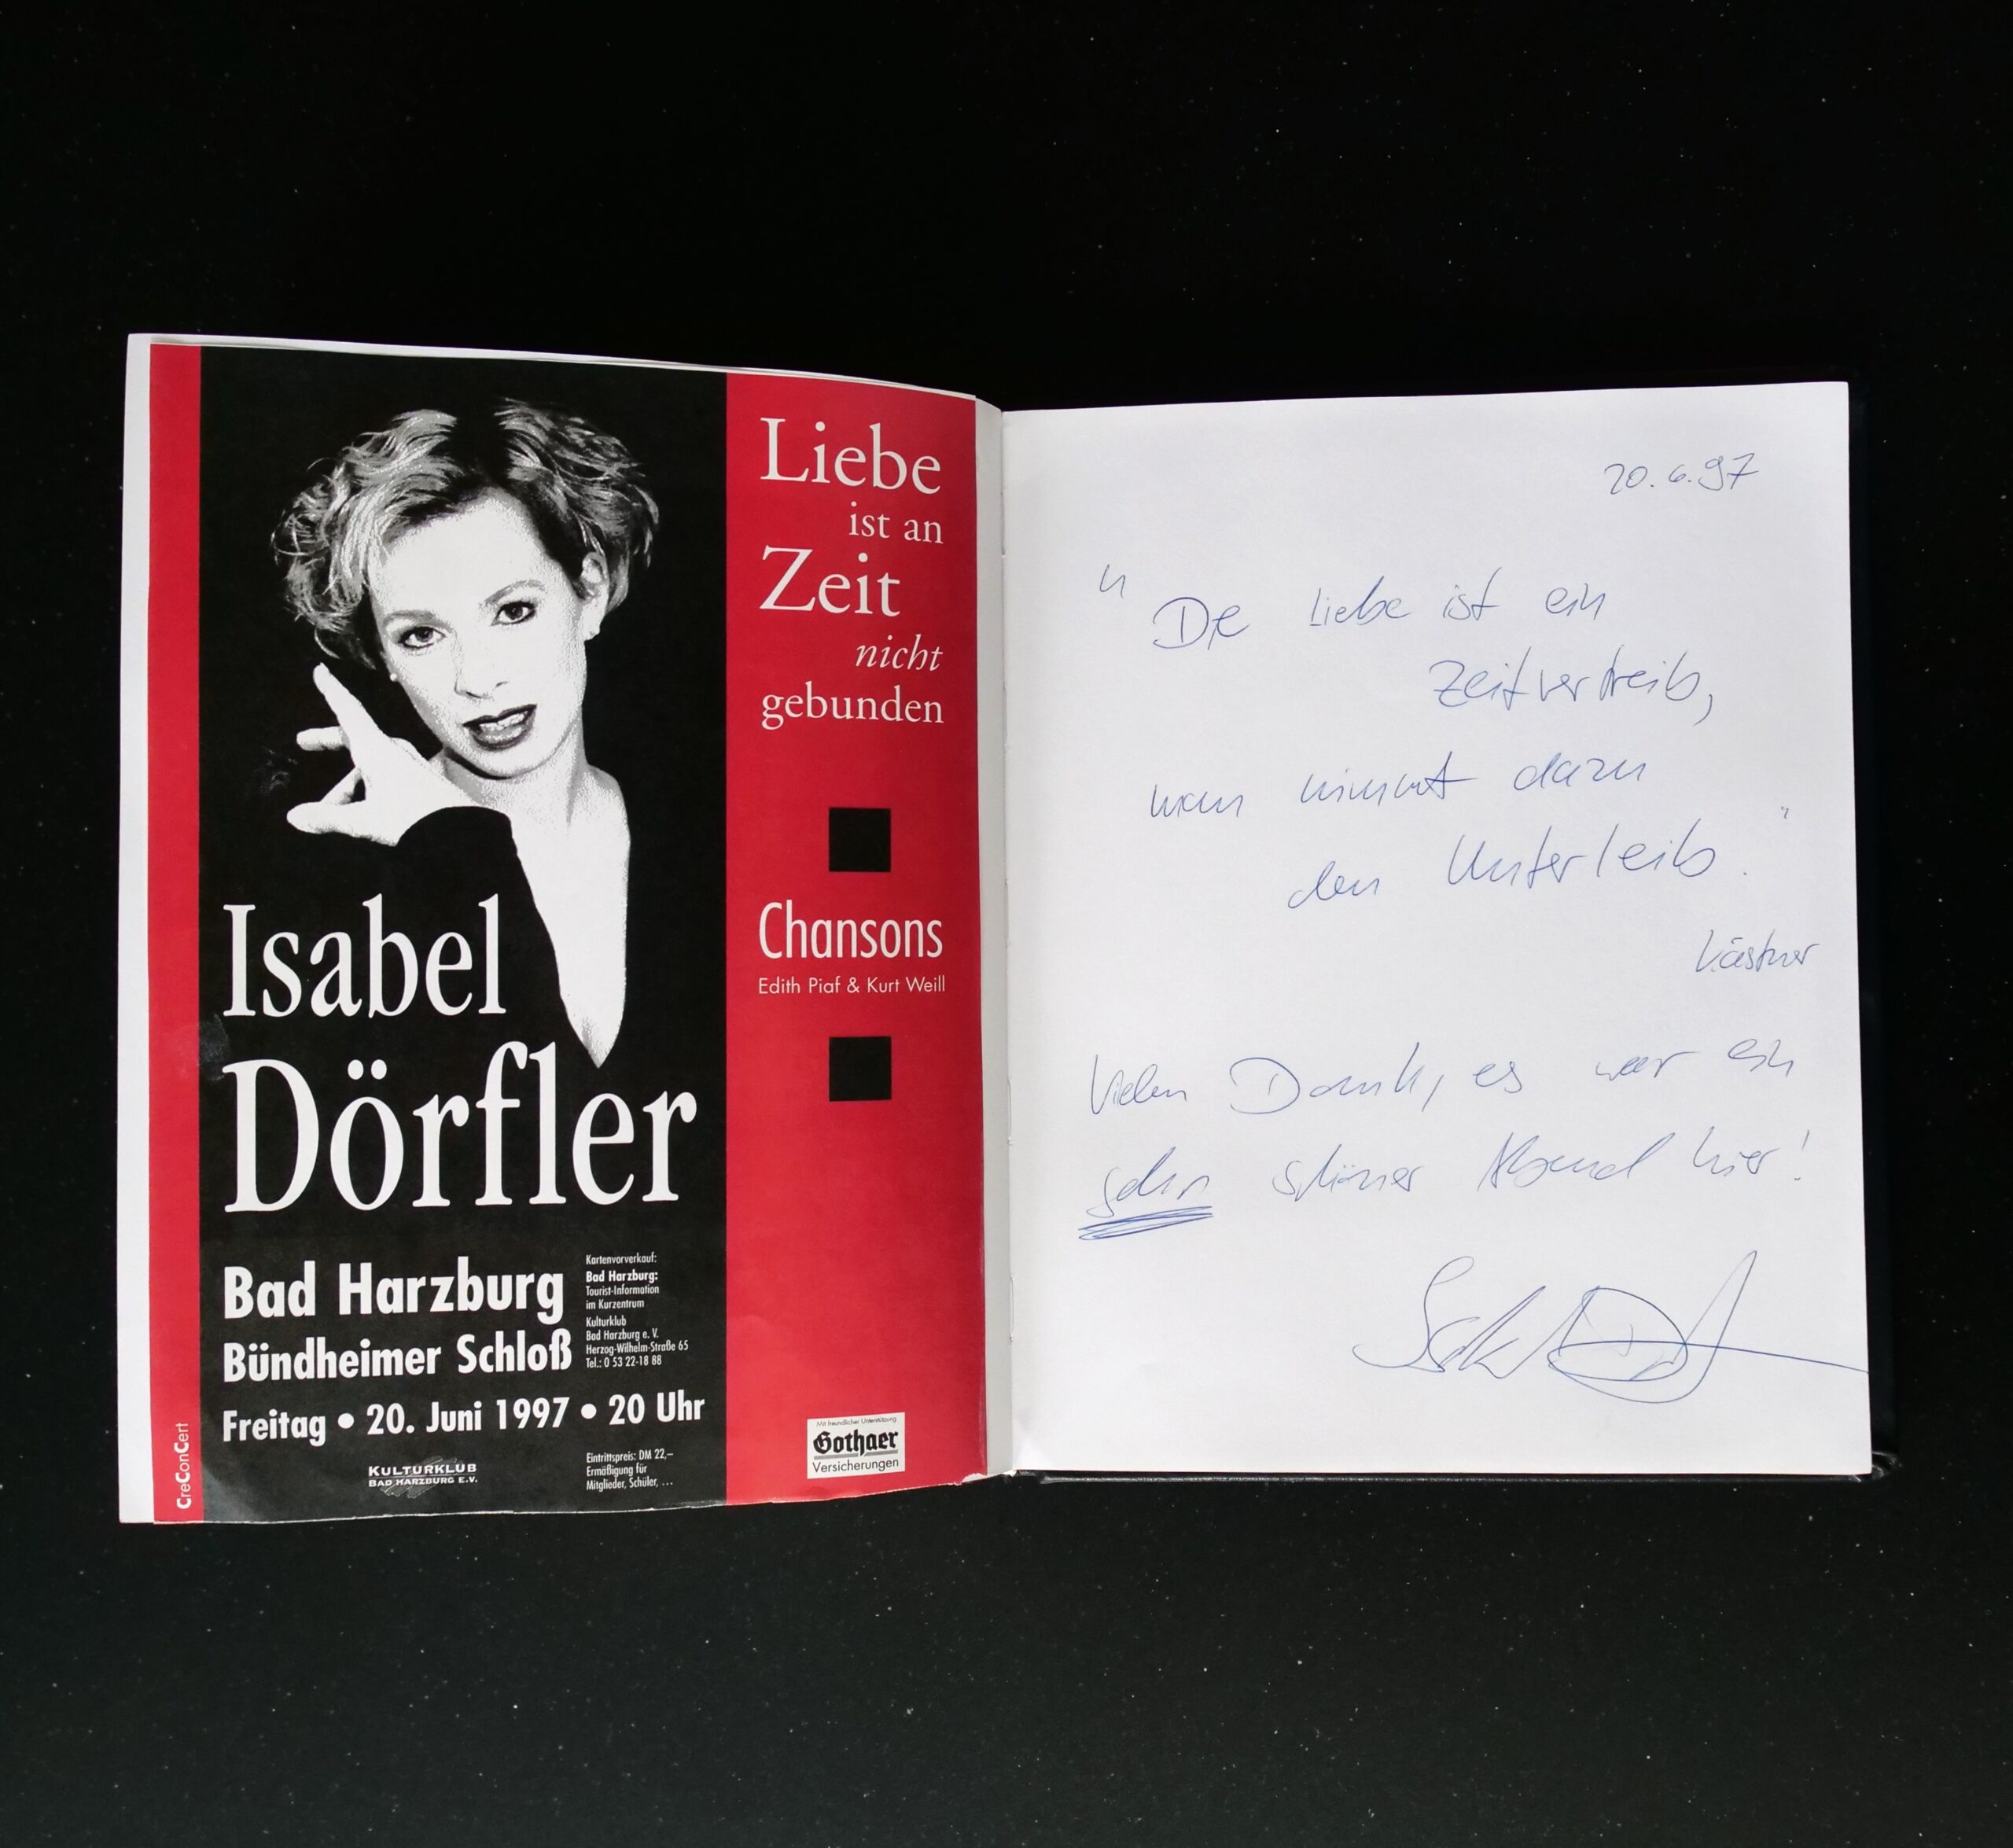 Liebe
ist an
Zeit
nicht
gebunden
Chansons
Edith Piaf & Kurt Weill
Isabel
Dörfler
Bad Harzburg
Bündheimer Schloß
Freitag • 20. Juni 1997 • 20 Uhr
Kartenvorverkauf:
Bad Harzburg:
Tourist-Information
im Kurzentrum
Kulturklub
Bad Harzburg e. V.
Herzog-Wilhelm-Straße 65
Tel.: 0 53 22-18 88
KULTURKLUB
BAD HARZBURG E.V.
Eintrittspreis: DM 22,–
Ermäßigung für
Mitglieder, Schüler, ...
CreConCert
Mit freundlicher Unterstützung
Gothaer
Versicherungen
20.6.97
"Die Liebe ist ein
Zeitvertreib,
man nimmt dazu
den Unterleib."
Kästner
Vielen Dank, es war ein
sehr schöner Abend hier!